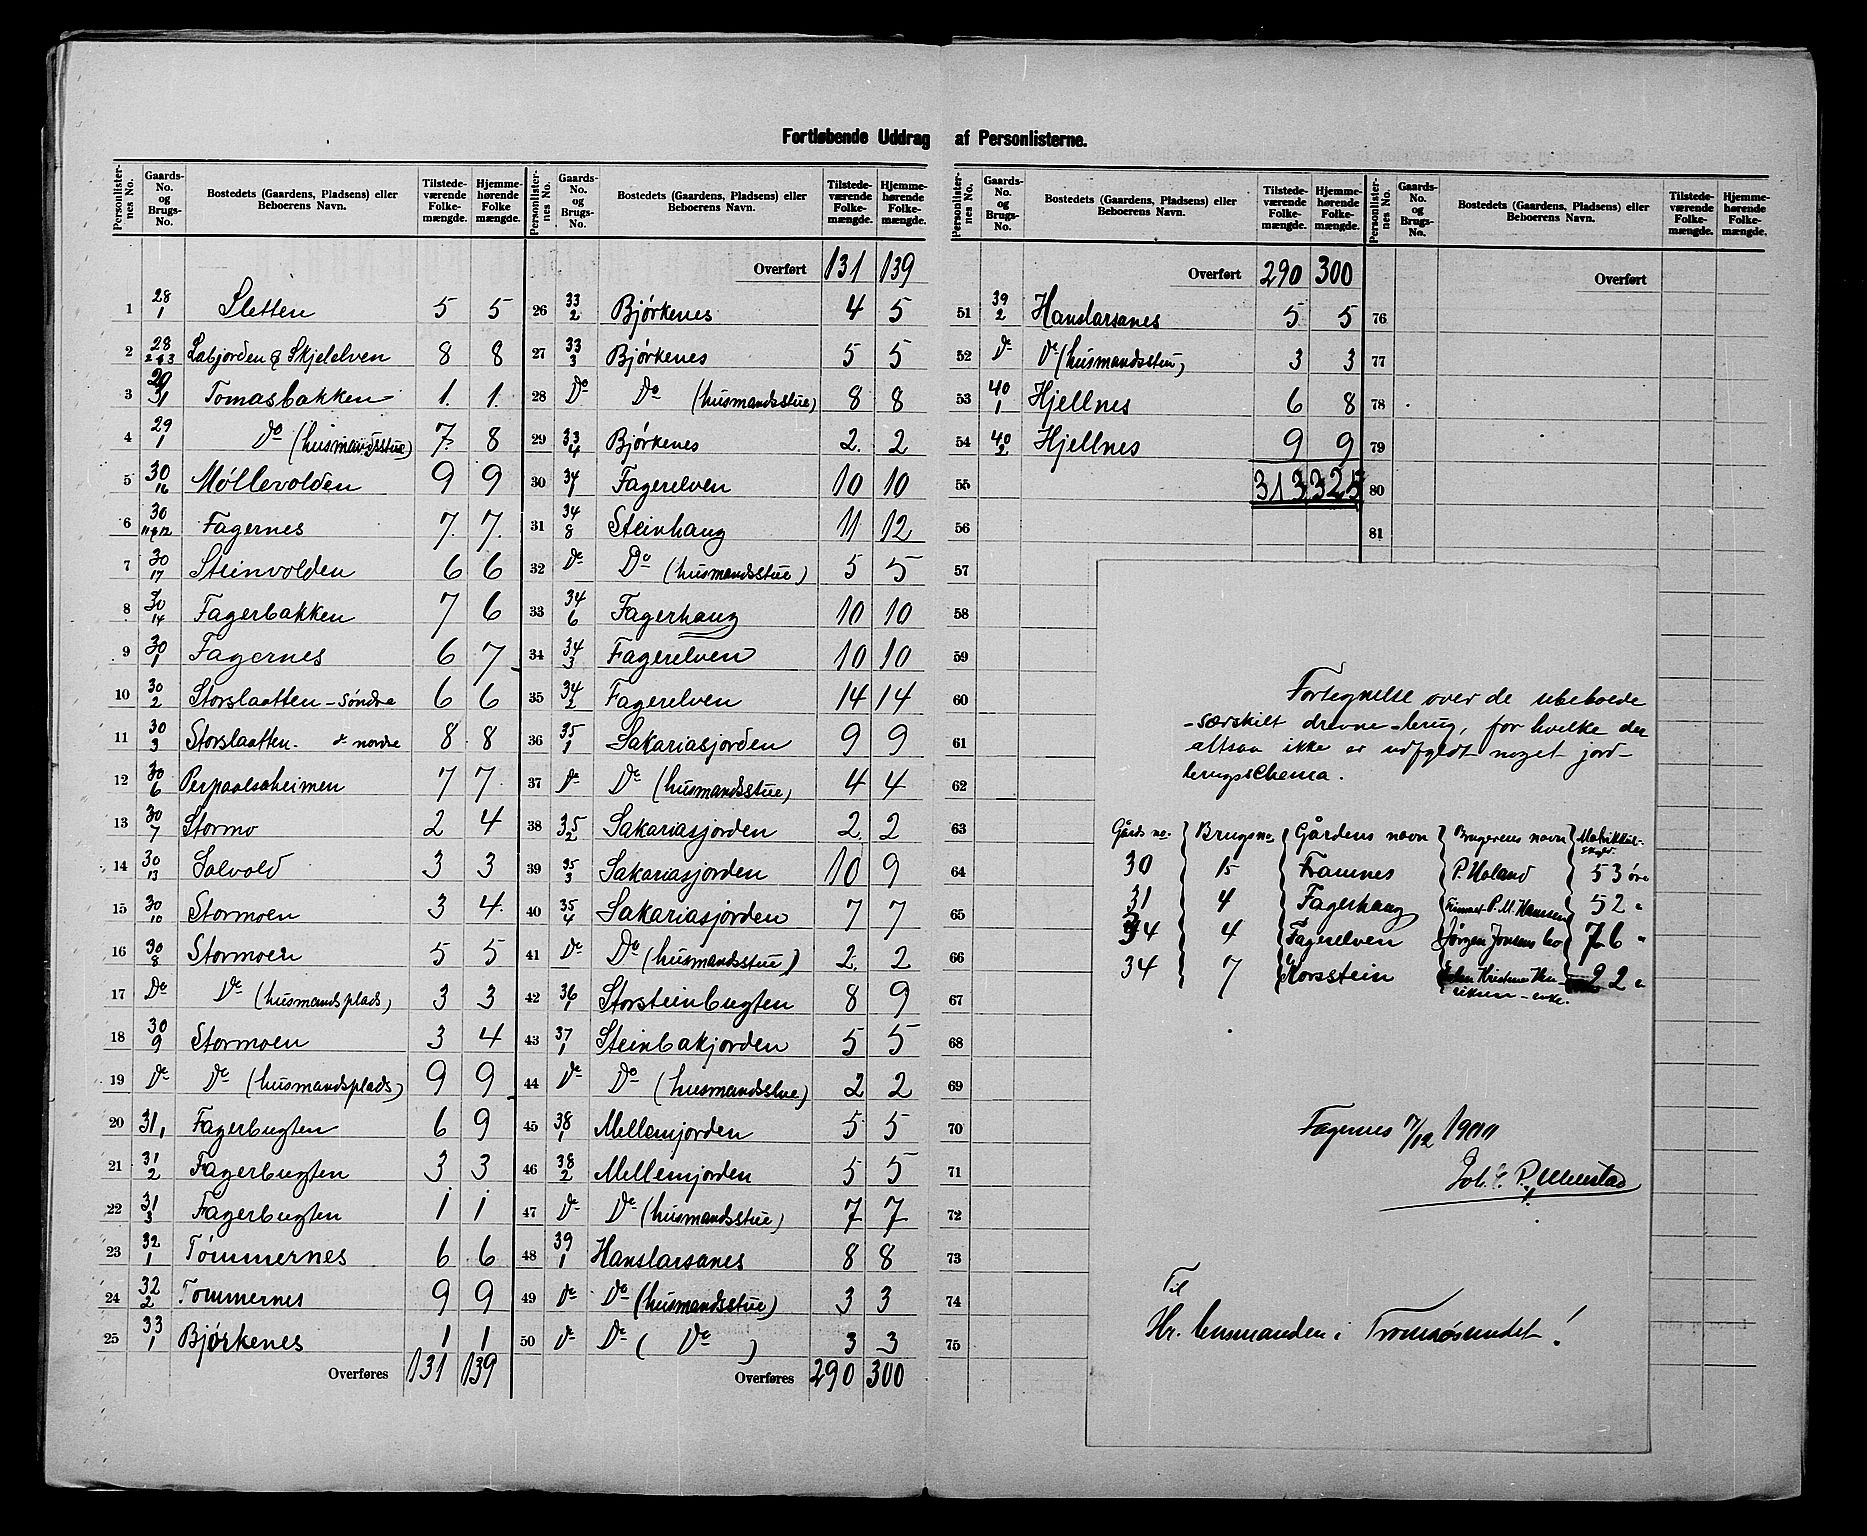 Fortløbende Uddrag af Personlisterne.
Personlisternes No. Gaards-No. og Brugs-No. Bostedets (Gaardens, Pladsens) eller Beboerens Navn. Tilstedeværende Folkemængde. Hjemmehørende Folkemængde.
1 28/1 Sletten 5 5
2 28/2&3 Labjorden & Skjelelven 8 8
3 29/1 Tomasbakken 1. 1.
4 29/1 Do (husmandsstue) 7 8
5 30/16 Møllevolden 9 9
6 30/11&12 Fagernes 7. 7.
7 30/17 Steinvolden 6 6
8 30/14 Fagerbakken 7 6
9 30/1 Fagernes 6 7
10 30/2 Storslaatten - søndre 6 6
11 30/3 Storslaatten. do nordre 8 8
12 30/6 Perpaalsaheimen 7 7
13 30/7 Stormo 2 4
14 30/13 Solvold 3 3
15 30/10 Stormoen 3 4
16 30/8 Stormoen 5 5
17 Do Do (husmandsplads) 3 3
18 30/9 Stormoen 3 4
19 Do Do (husmandsplads) 9 9
20 31/1 Fagerbugten 6 9
21 31/2 Fagerbugten 3 3
22 31/3 Fagerbugten 1 1
23 32/1 Tømmernes 6 6
24 32/2 Tømmernes 9 9
25 33/1 Bjørkenes 1 1
Overføres 131 139
Personlisternes No. Gaards-No. og Brugs-No. Bostedets (Gaardens, Pladsens) eller Beboerens Navn. Tilstedeværende Folkemængde. Hjemmehørende Folkemængde.
Overført 131 139
26 33/2 Bjørkenes 4 5
27 33/3 Bjørkenes 5 5
28 Do Do (husmandsstue) 8 8
29 33/4 Bjørkenes 2. 2
30 34/1 Fagerelven 10 10
31 34/8 Steinhaug 11 12
32 Do Do (husmandsstue) 5 5
33 34/6 Fagerhaug 10 10
34 34/3 Fagerelven 10 10
35 34/2 Fagerelven 14 14
36 35/1 Sakariasjorden 9 9
37 Do Do (husmandsstue) 4 4
38 35/2 Sakariasjorden 2. 2
39 35/3 Sakariasjorden 10 9
40 35/4 Sakariasjorden 7 7
41 Do Do (husmandsstue) 2. 2
42 36/1 Storsteinbugten 8 9
43 37/1 Steinbakjorden 5 5
44 Do Do (husmandsstue) 2 2
45 38/1 Mellemjorden 5 5
46 38/2 Mellemjorden 5 5
47 Do Do (husmandsstue) 7 7
48 39/1 Hanslarsanes 8 8
49 Do Do (husmandsstue) 3 3
50 Do Do ( Do ) 3 3
Overføres 290 300
Personlisternes No. Gaards-No. og Brugs-No. Bostedets (Gaardens, Pladsens) eller Beboerens Navn. Tilstedeværende Folkemængde. Hjemmehørende Folkemængde.
Overført 290 300
51 39/2 Hanslarsanes 5 5
52 Do Do (husmandsstue) 3 3
53 40/1 Hjellnes 6 8
54 40/2 Hjellnes 9 9
55 313 325
56
57
58
59
60
61
62
63
64
65
66
67
68
69
70
71
72
73
74
75
Personlisternes No. Gaards-No. og Brugs-No. Bostedets (Gaardens, Pladsens) eller Beboerens Navn. Tilstedeværende Folkemængde. Hjemmehørende Folkemængde.
Overført
76
77
78
79
80
81
Fortegnelse over de ubeboede
særskilt drevne brug, for hvilke der
altsaa ikke er udfyldt noget jord-
brugsschema.
Gårds no. Brugsno. Gårdens navn Brugerens navn Matrikkul-skyld
30 15 Framnes P. Moland 53 øre
31 4 Fagerhaug P. M. Hansen 52 "
34 4 Fagerelven Jørgen Jensens bo 76 "
34 7 Korsstein Enken Kristine Hen- 22 "
riksen - enke.
Fagernes 7/12 1900
Til
Hr. lensmanden i Tromsøsundet!